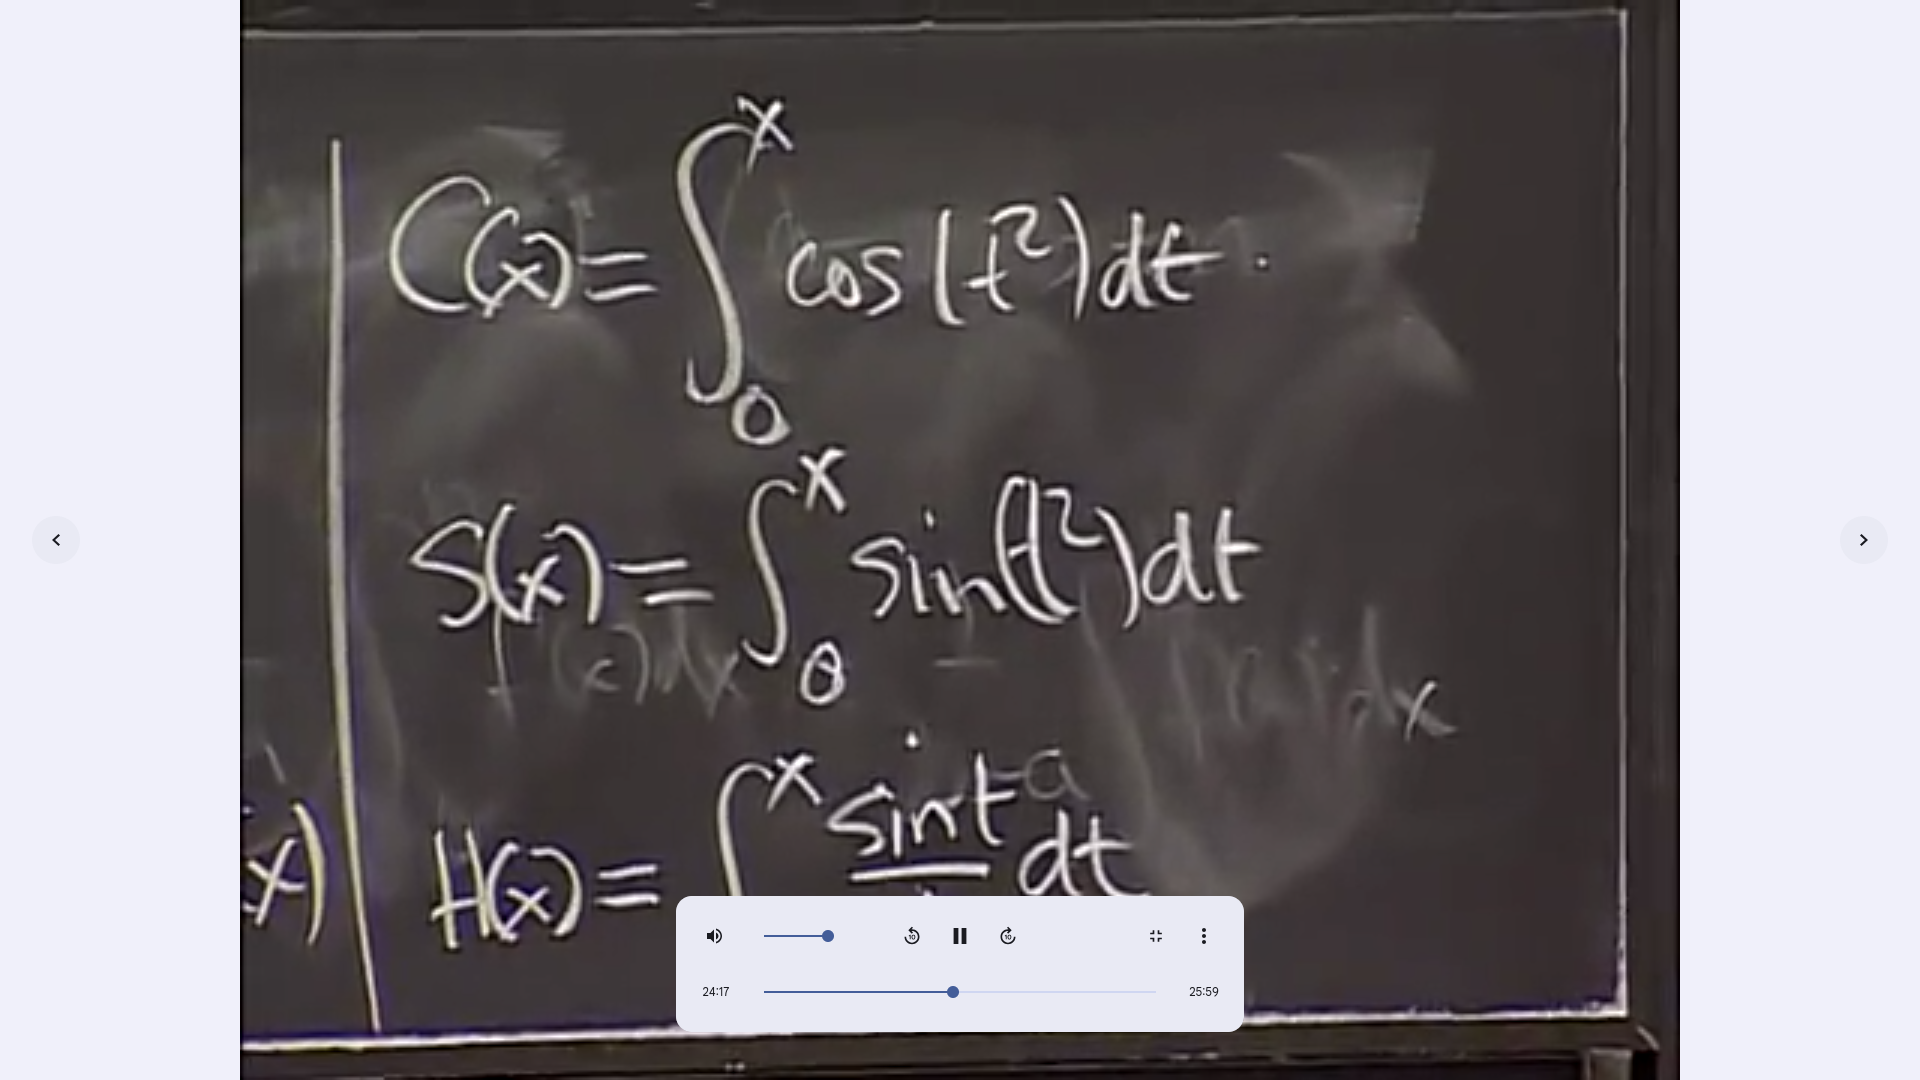 C(x) = ∫₀ˣ cos(t²)dt.
S(x) = ∫₀ˣ sin(t²)dt
(x)dx
dx
a
H(x) = ∫ˣ sint dt
x)
10
10
24:17
25:59